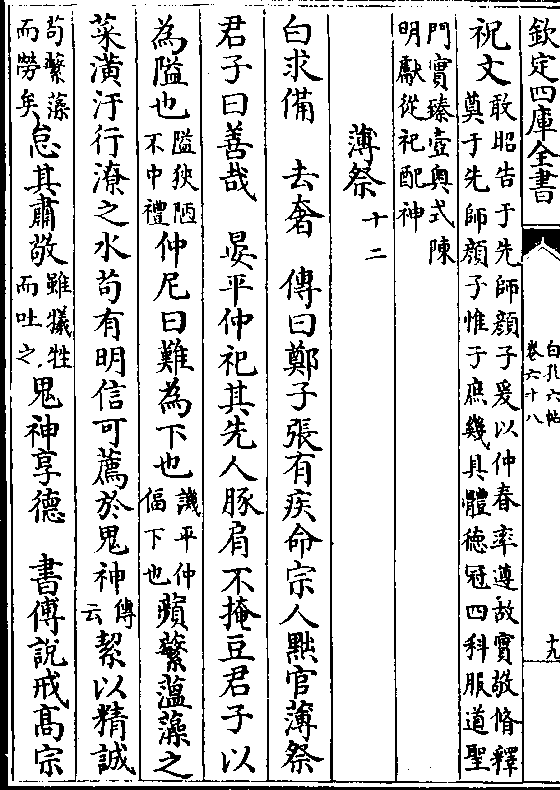 欽定四庫全書
白孔六帖
卷六十八
十九
祝文
敢昭告于先師顔子爰以仲春率遵故實敬脩釋
奠于先師顔子惟子庶幾具體德冠四科服道聖
門實臻壼奥式陳
明獻從祀配神
薄祭
十二
白求備　去奢　傳曰鄭子張有疾命宗人黜官薄祭
君子曰善哉　晏平仲祀其先人豚肩不掩豆君子以
為隘也
隘狹陋
不中禮
仲尼曰難為下也
譏平仲
偪下也
蘋蘩薀藻之
菜潢汙行潦之水苟有明信可薦於鬼神
傳
云
絜以精誠
苟蘩藻
而勞矣
怠其肅敬
雖犧牲
而吐之
鬼神享德　書傅說戒高宗